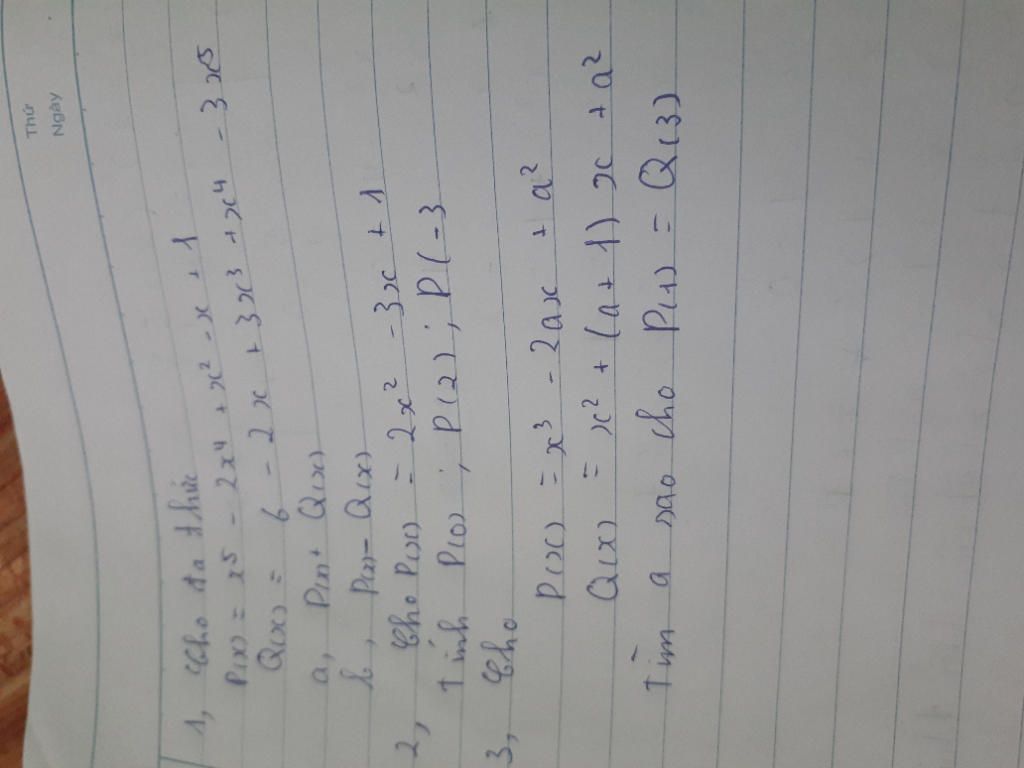 Thứ
Ngày
1, Cho đa thức
P(x) = x⁵ - 2x⁴ + x² - x + 1
Q(x) = 6 - 2x + 3x³ + x⁴ - 3x⁵
a, P(x) + Q(x)
b, P(x) - Q(x)
2, Cho P(x) = 2x² - 3x + 1
Tính P(0) ; P(2) ; P(-3
3, Cho
P(x) = x³ - 2ax + a²
Q(x) = x² + (a + 1) x + a²
Tìm a sao cho P(1) = Q(3)